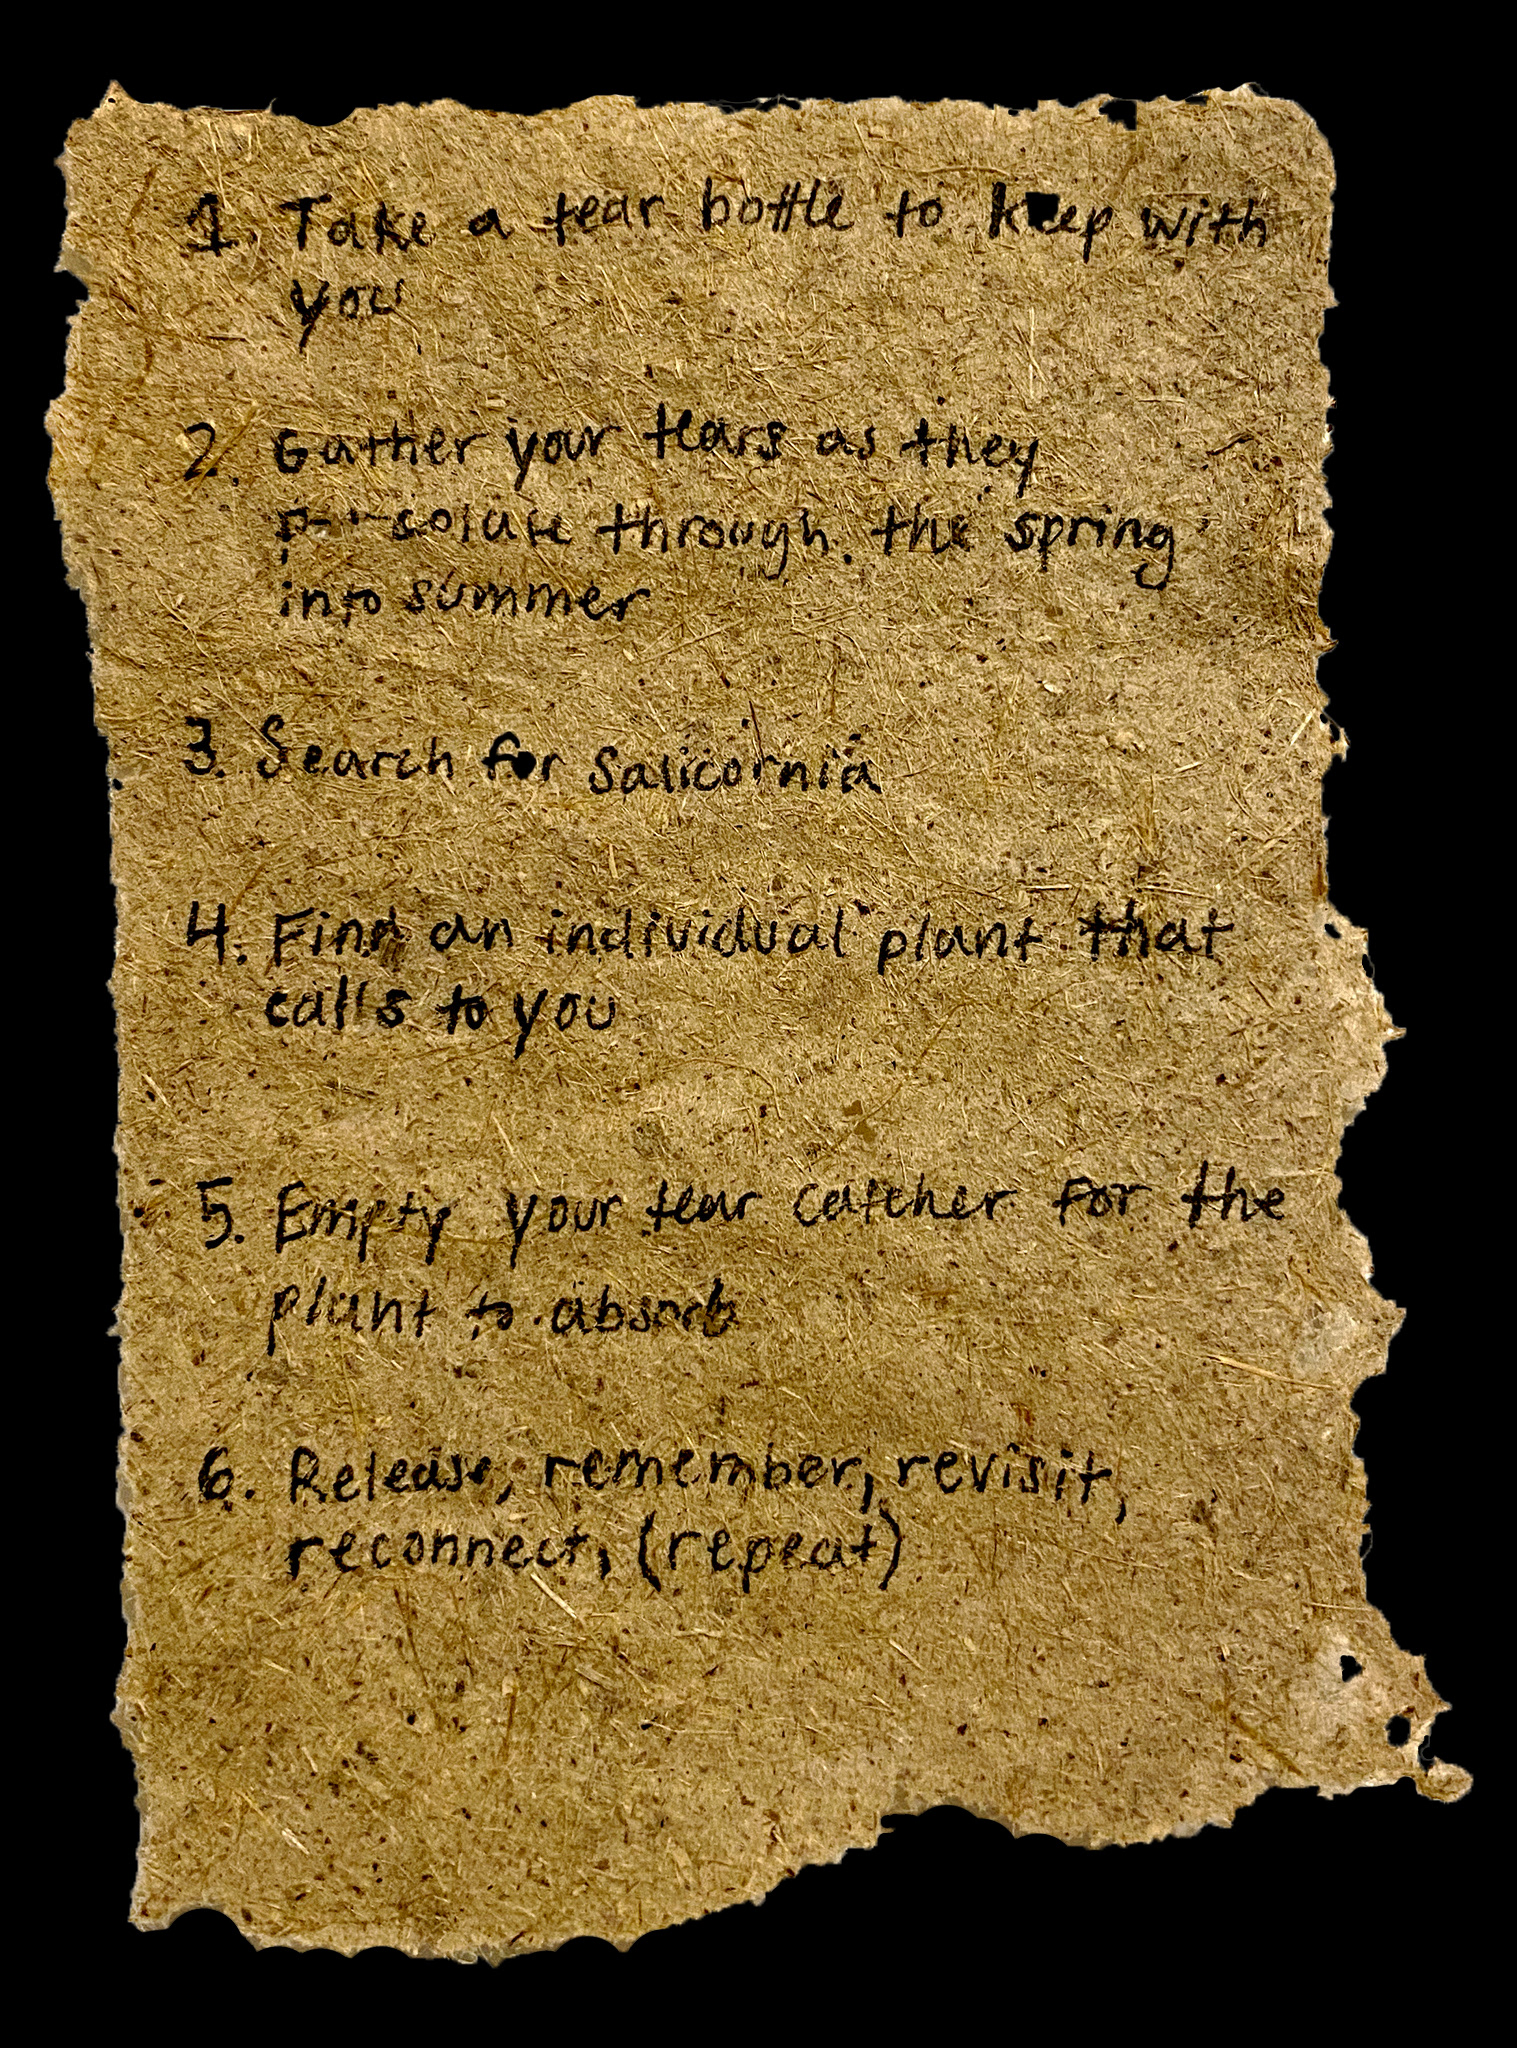 1. Take a tear bottle to keep with
you
2. Gather your tears as they
through the spring
into summer
3. Search for Salicornia
4. Find an individual plant that
calls to you
5. Empty your tear catcher for the
plant to absorb
6. Release, remember, revisit,
reconnect, (repeat)